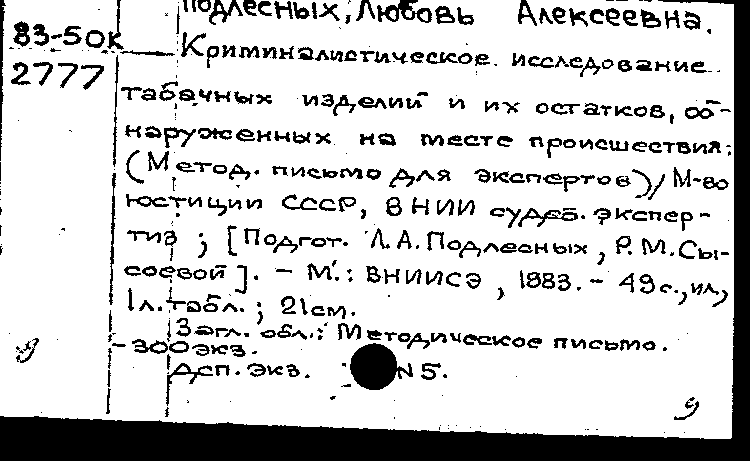 Подлесных, Любовь Алексеевна.
83-50К
Криминалистическое исследование
2777
табачных изделий и их остатков, об-
наруженных на месте происшествия:
(Метод. письмо для экспертов) / М-во
юстиции СССР, ВНИИ судеб. экспер-
тиз ; [Подгот. Л. А. Подлесных, Р. М. Сы-
соевой]. - М.: ВНИИСЭ, 1983. - 49 с., ил.,
1 л. табл. ; 21 см.
Загл. обл.: Методическое письмо.
-300 экз.
Дсп. Экз. N 5.
9
9